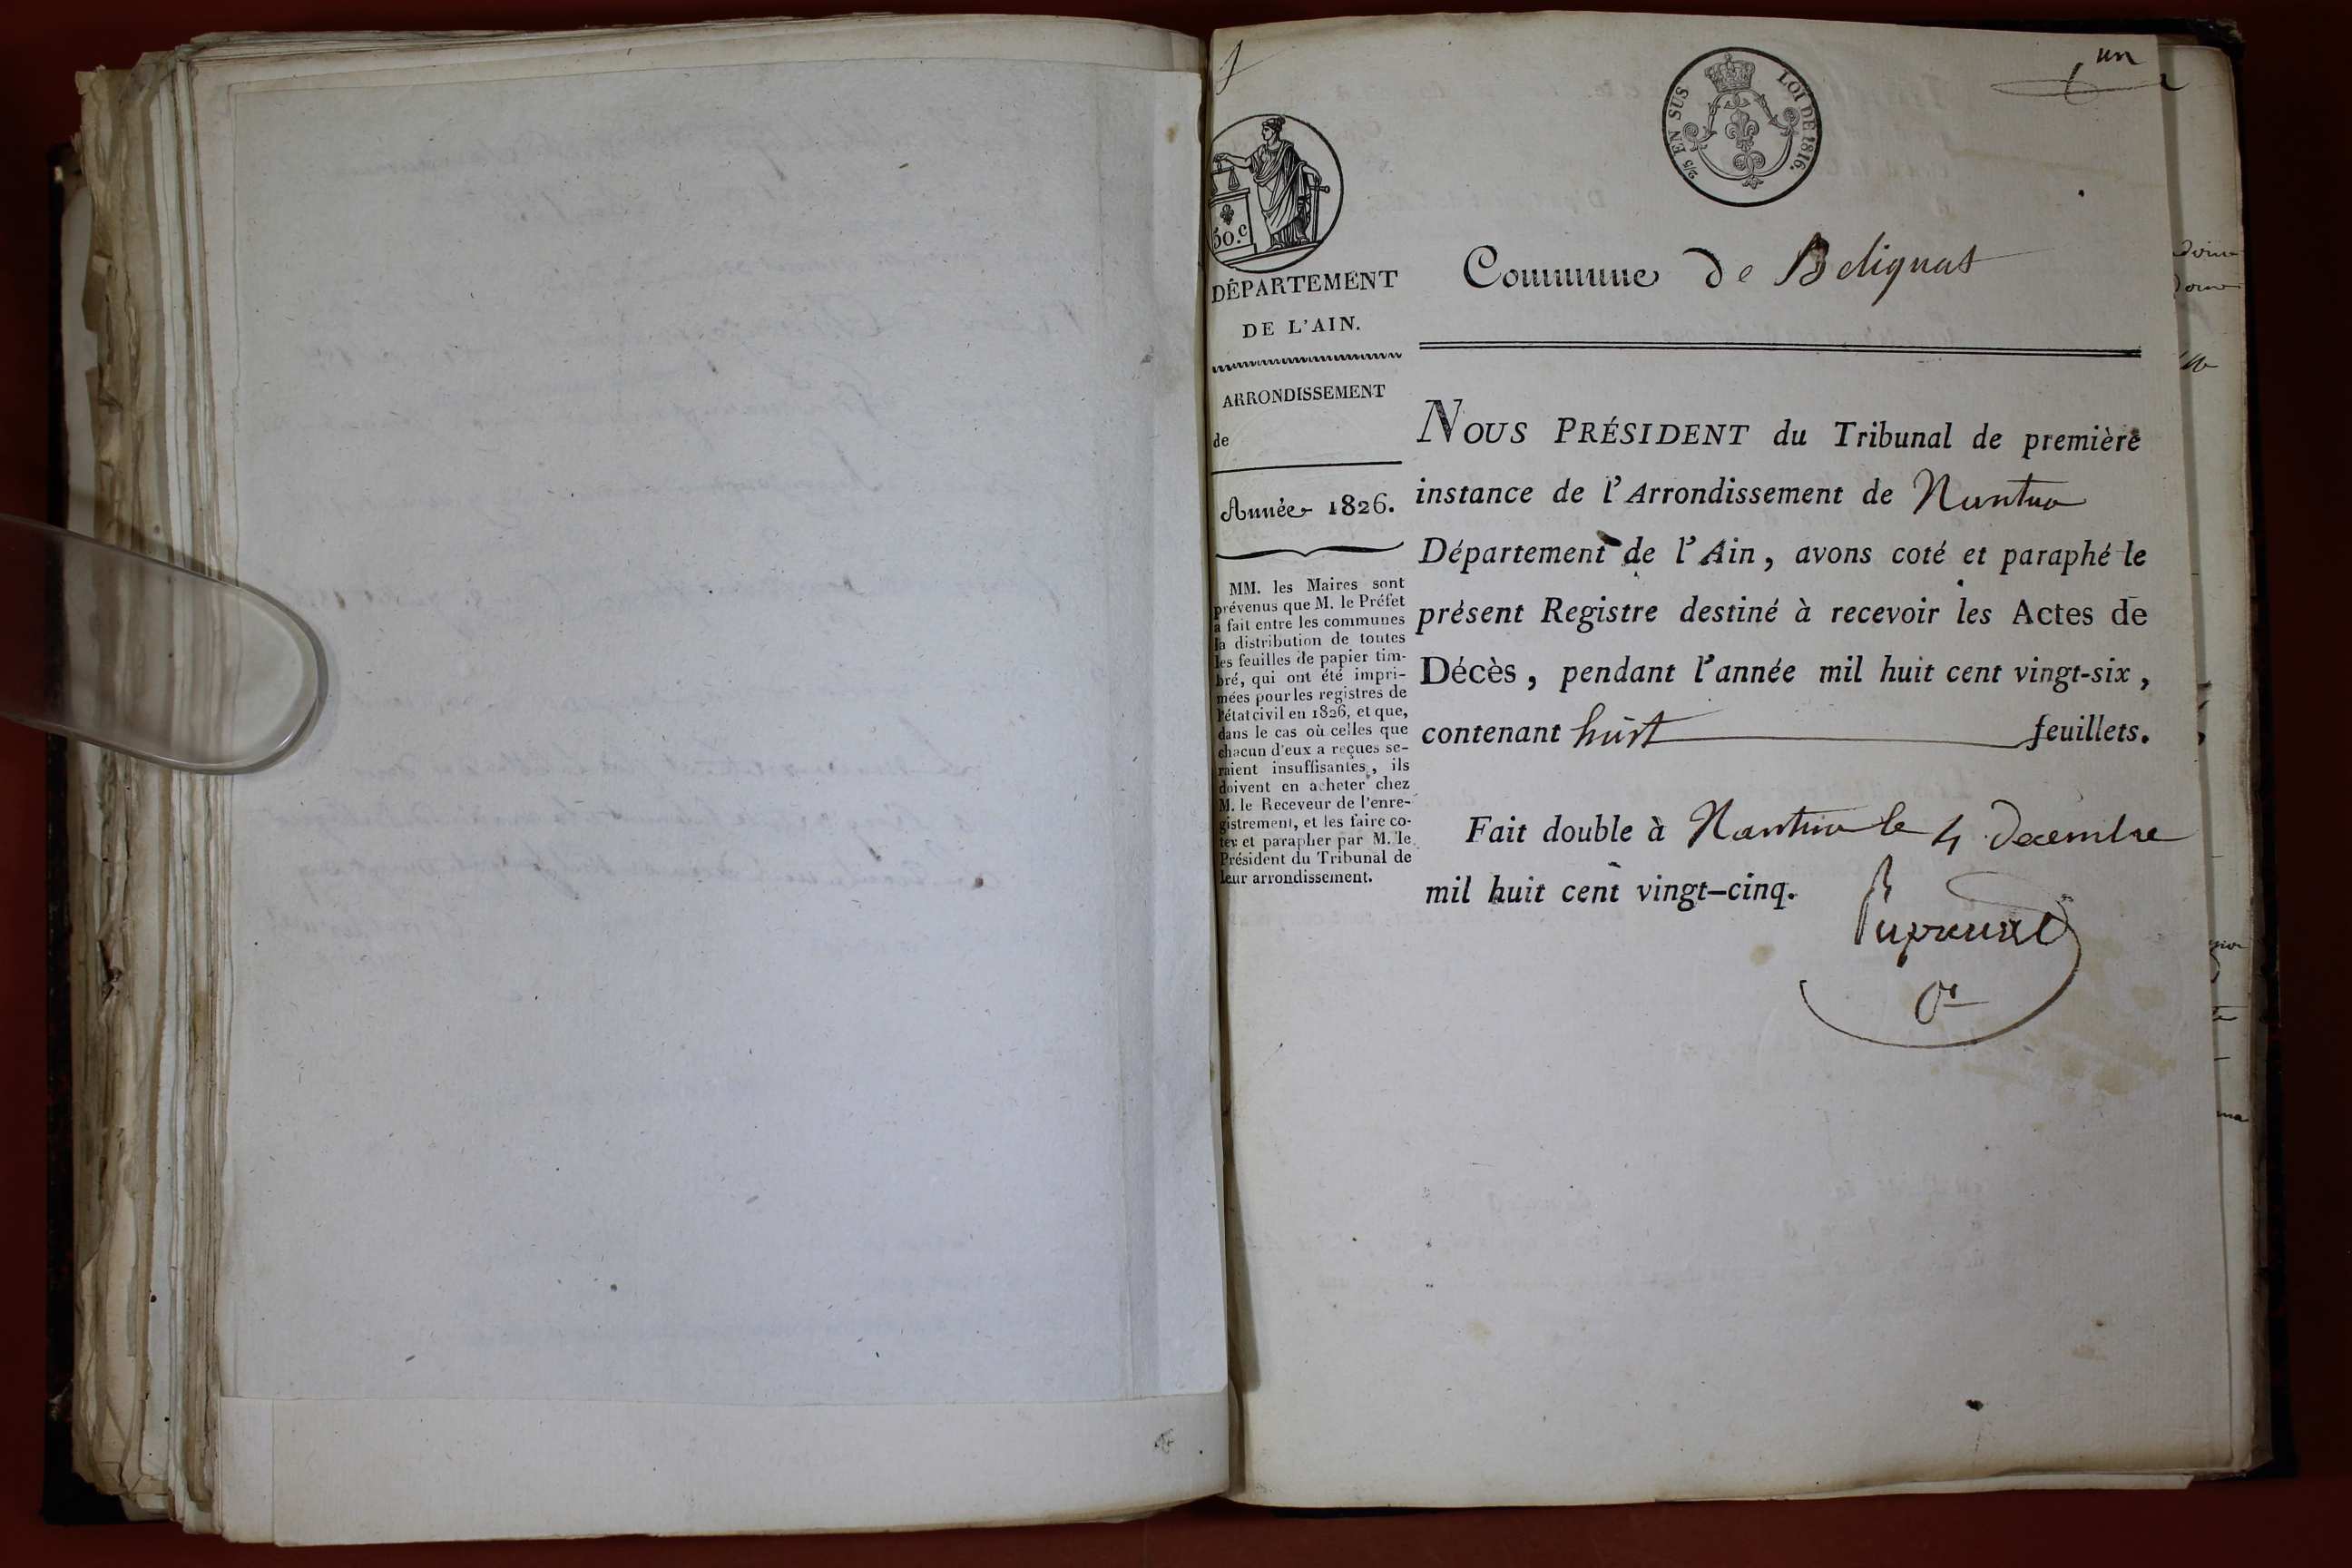 1
un
2/5 EN SUS
LOI DE 1816.
50.c
DÉPARTEMENT
DE L'AIN.
ARRONDISSEMENT
de
Année 1826.
MM. les Maires sont
prévenus que M. le Préfet
a fait entre les communes
la distribution de toutes
les feuilles de papier tim-
bré, qui ont été impri-
mées pour les registres de
l'état civil en 1826, et que,
dans le cas où celles que
chacun d'eux a reçues se-
raient insuffisantes, ils
doivent en acheter chez
M. le Receveur de l'enre-
gistrement, et les faire co-
ter et parapher par M. le
Président du Tribunal de
leur arrondissement.
Commune de Belignat
NOUS PRÉSIDENT du Tribunal de première
instance de l'Arrondissement de Nantua
Département de l'Ain, avons coté et paraphé le
présent Registre destiné à recevoir les Actes de
Décès, pendant l'année mil huit cent vingt-six,
contenant huit feuillets.
Fait double à Nantua le 4 decembre
mil huit cent vingt-cinq.